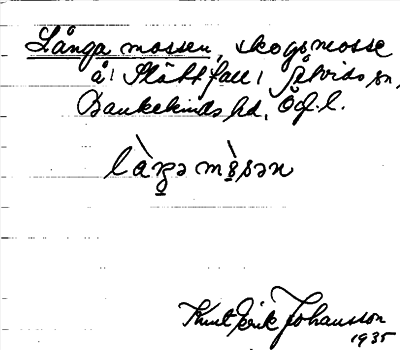 Långa mossen, skogsmosse
å Slättfall, Åtvids sn,
Bankekinds hd, Ög. l.
Knut Erik Johansson
1935